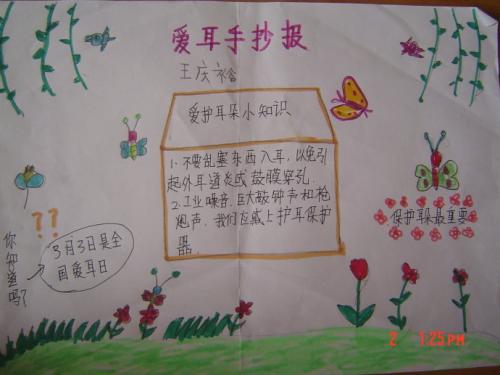 爱耳手抄报
王庆裕
爱护耳朵小知识
1.不要乱塞东西入耳，以免引
起外耳道炎或鼓膜穿孔.
2.工业噪音.巨大鼓钟声和枪
炮声.我们应戴上护耳保护
器.
保护耳朵最重要
??
你知道吗？
3月3日是全
国爱耳日
2 1:25PM